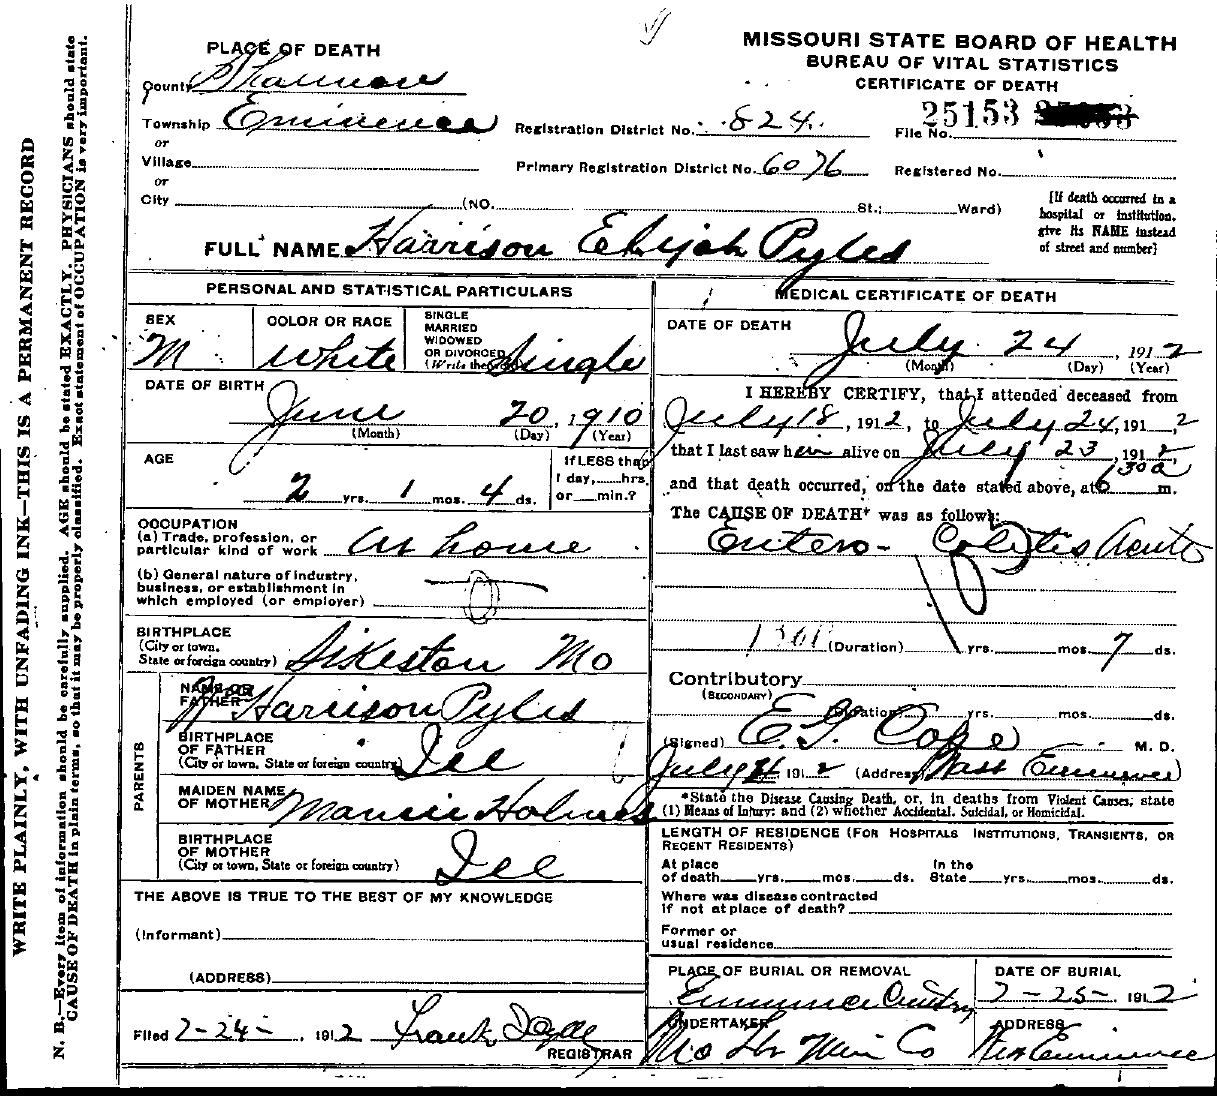 WRITE PLAINLY, WITH UNFADING INK—THIS IS A PERMANENT RECORD
N. B.—Every item of information should be carefully supplied. AGE should be stated EXACTLY. PHYSICIANS should state
CAUSE OF DEATH in plain terms, so that it may be properly classified. Exact statement of OCCUPATION is very important.
MISSOURI STATE BOARD OF HEALTH
BUREAU OF VITAL STATISTICS
CERTIFICATE OF DEATH
PLACE OF DEATH
County Shannon
Township Eminence
or
Village
or
City (NO. St.; Ward)
Registration District No. 824
File No. 25153
Primary Registration District No. 6076
Registered No.
[If death occurred in a
hospital or institution,
give its NAME instead
of street and number]
FULL NAME Harrison Elijah Pyles
PERSONAL AND STATISTICAL PARTICULARS
SEX
M
COLOR OR RACE
White
SINGLE
MARRIED
WIDOWED
OR DIVORCED
(Write the word) Single
DATE OF BIRTH
June 20, 1910
(Month) (Day) (Year)
AGE
2 yrs. 1 mos. 4 ds.
If LESS than
1 day, hrs.
or min.?
OCCUPATION
(a) Trade, profession, or
particular kind of work At home
(b) General nature of industry,
business, or establishment in
which employed (or employer)
BIRTHPLACE
(City or town,
State or foreign country) Sikeston Mo
PARENTS
NAME OF
FATHER Harrison Pyles
BIRTHPLACE
OF FATHER
(City or town, State or foreign country) Ill
MAIDEN NAME
OF MOTHER Holmes
BIRTHPLACE
OF MOTHER
(City or town, State or foreign country) Ill
THE ABOVE IS TRUE TO THE BEST OF MY KNOWLEDGE
(Informant)
(ADDRESS)
Filed 7-24-, 1912 Frank
REGISTRAR
MEDICAL CERTIFICATE OF DEATH
DATE OF DEATH
July 24, 1912
(Month) (Day) (Year)
I HEREBY CERTIFY, that I attended deceased from
July 18, 1912, to July 24, 1912,
that I last saw him alive on July 23, 1912,
and that death occurred, on the date stated above, at 6 30 a m.
The CAUSE OF DEATH* was as follows:
Entero-Colitis Acute
(Duration) yrs. mos. 7 ds.
Contributory
(SECONDARY)
(Duration) yrs. mos. ds.
(Signed) E. G. Cope M. D.
July 1912 (Address) West Eminence
*State the Disease Causing Death, or, in deaths from Violent Causes, state
(1) Means of Injury; and (2) whether Accidental, Suicidal, or Homicidal.
LENGTH OF RESIDENCE (FOR HOSPITALS, INSTITUTIONS, TRANSIENTS, OR
RECENT RESIDENTS)
At place
of death yrs. mos. ds.
In the
State yrs. mos. ds.
Where was disease contracted
if not at place of death?
Former or
usual residence
PLACE OF BURIAL OR REMOVAL
Eminence Cemetery
DATE OF BURIAL
7-25-, 1912
UNDERTAKER
Mo Co
ADDRESS
West Eminence